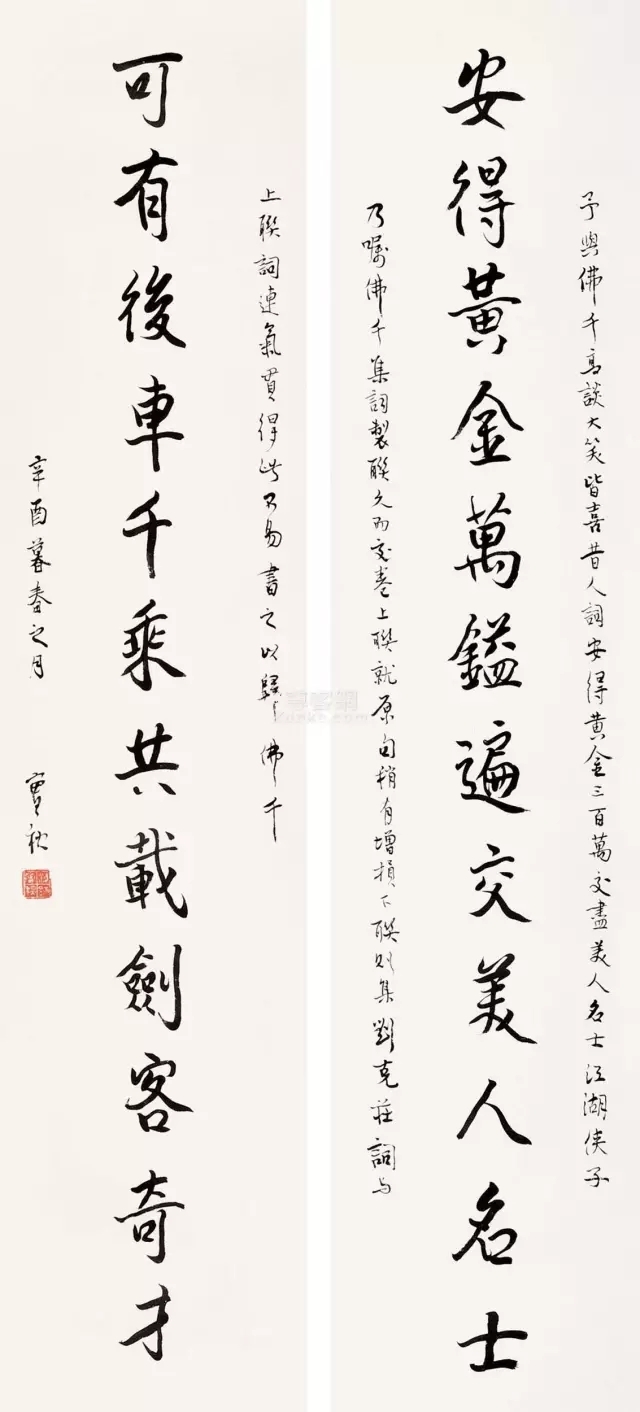 予與佛千高談大笑皆喜昔人詞安得黃金三百萬交盡美人名士江湖俠子
安得黃金萬鎰遍交美人名士
乃囑佛千集詞製聯久而交卷上聯就原句稍有增損下聯則集劉克莊詞与
上聯詞連氣貫得此不易書之以歸佛千
可有後車千乘共載劍客奇才
辛酉暮春之月
賓秋